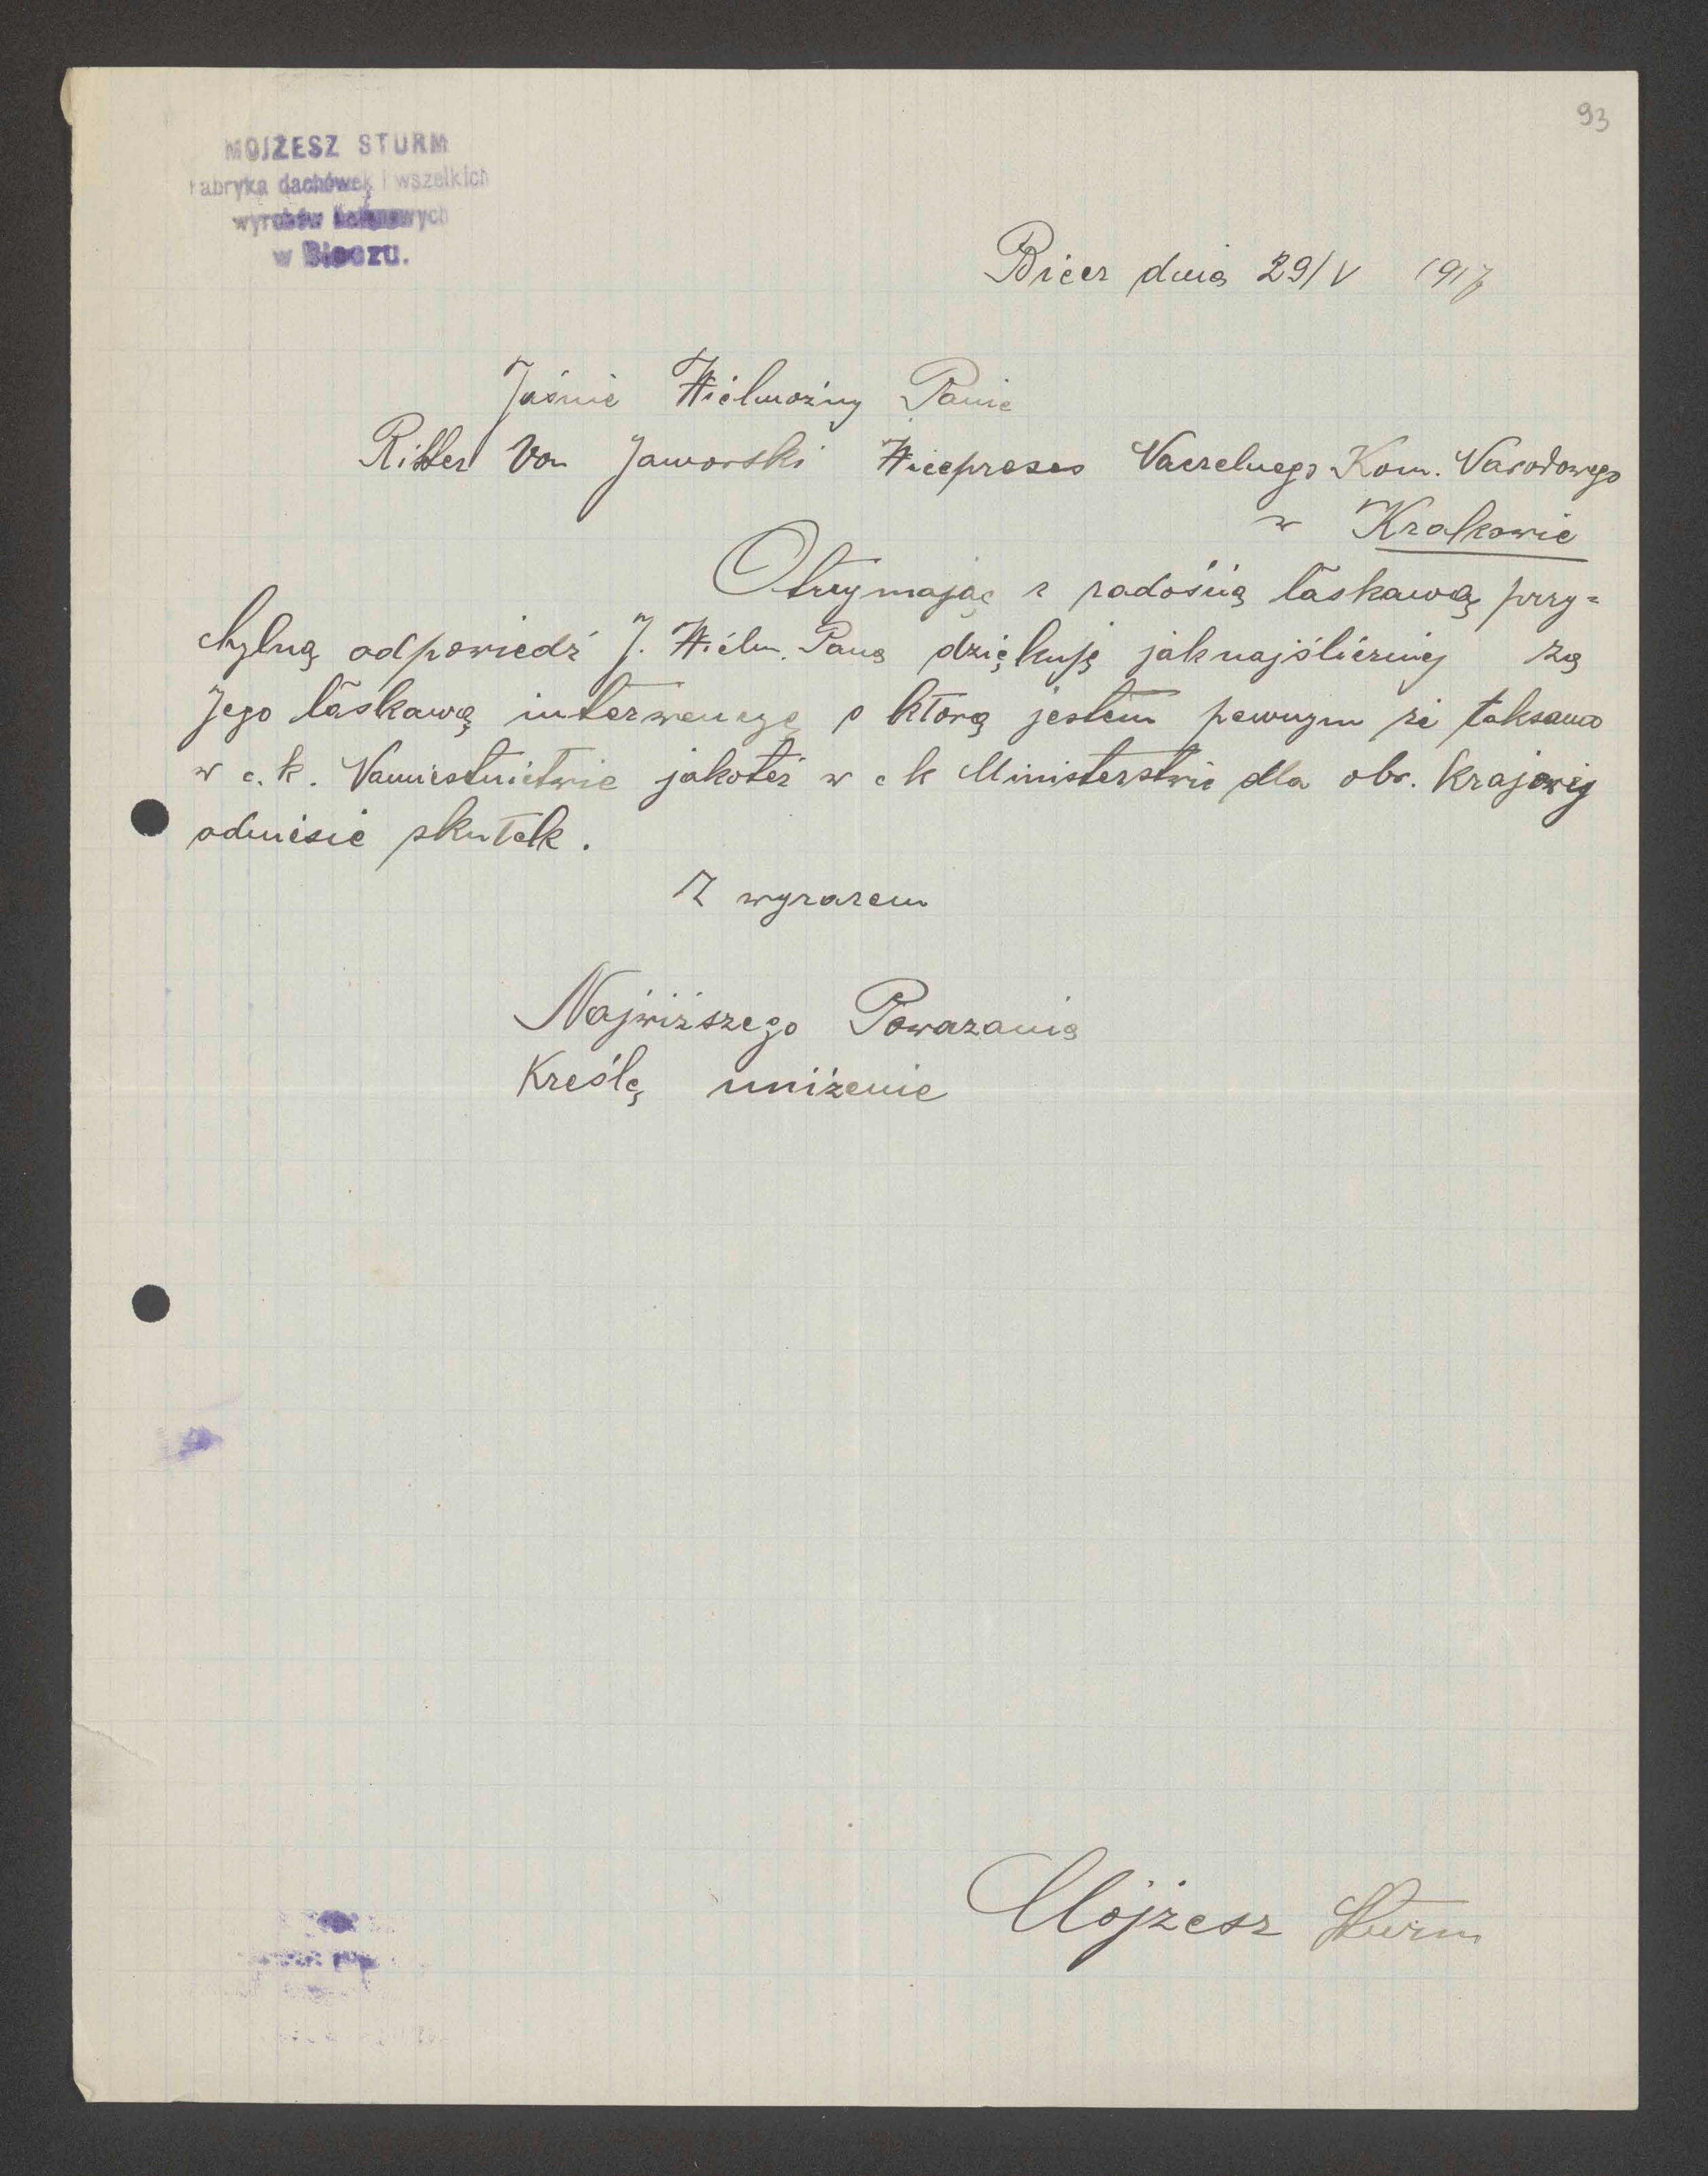 93
MOJŻESZ STURM
Fabryka dachówek i wszelkich
wyrobów betonowych
w Bieczu.
Biecz dnia 29/V 1917
Jaśnie Wielmożny Panie
Ritter von Jaworski Wiceprezes Naczelnego Kom. Narodowego
w Krakowie
Otrzymając z radością łaskawą przy=
chylną odpowiedź J. Wielm. Pana dziękuję jaknajśliczniej za
Jego łaskawą interwencyę o którą jestem pewnym że taksamo
w c. k. Namiestnictwie jakoteż w c k Ministerstwie dla obr. Krajowej
odniesie skutek.
Z wyrazem
Najwiższego Powazania
Kreślę uniżenie
Mojżesz Sturm